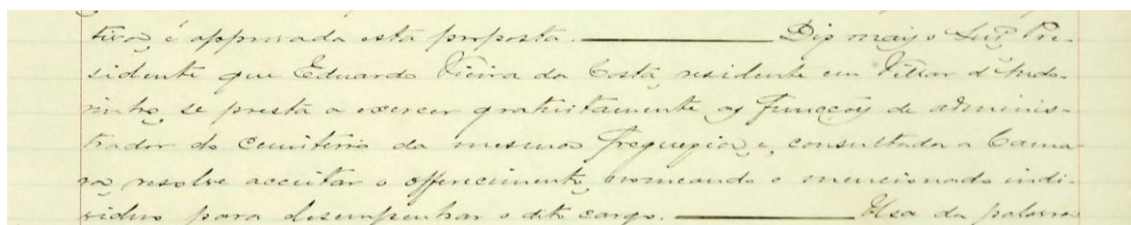 tiva, é approvada esta proposta. ——— Diz mais o Snr. Pre-
sidente que Eduardo Vieira da Costa residente em Villar d'Ando-
rinho, se presta a exercer gratuitamente as funcções de adminis-
trador do cemiterio da mesma freguezia, e, consultada a Cama-
ra, resolve acceitar o offerecimento, nomeando o mencionado indi-
viduo para desempenhar o dito cargo. ——— Usa da palavra